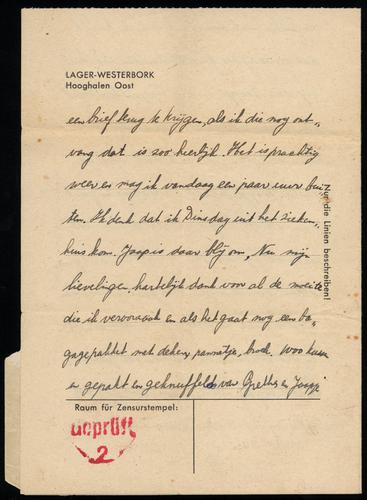 LAGER-WESTERBORK
Hooghalen Oost
een brief terug te krijgen, als ik die nog ont„
vang dat is zoo heerlijk. Het is prachtig
weer en mag ik vandaag een paar uur bui
ten. Ik denk dat ik Dinsdag uit het zieken„
huis kom. Jaap is daar blij om, Nu mijn
lievelingen, hartelijk dank voor al de moeite
die ik veroorzaak en als het gaat nog een ba„
gagepakket met deken, pannetje, broek.
en gepakt en geknuffeld van Grethe en Jaapje
Nur die Linien beschreiben!
Raum für Zensurstempel:
Geprüft
2